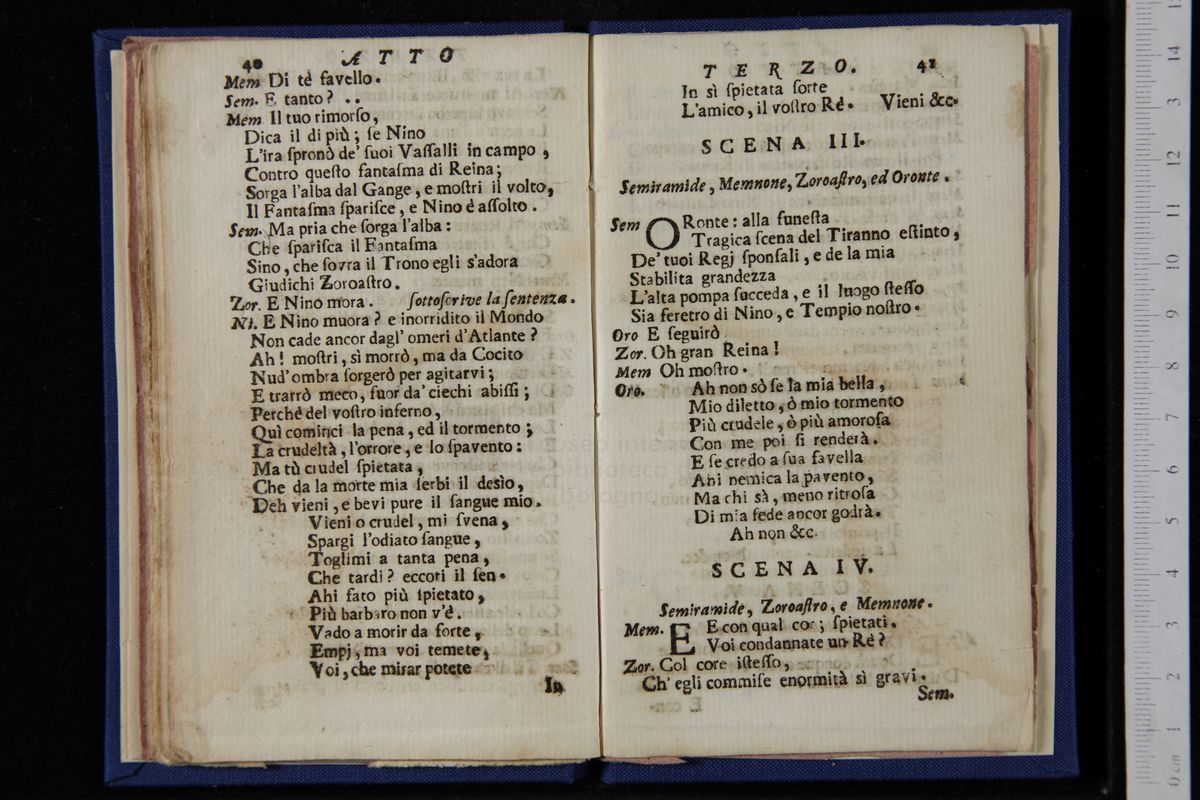 40 ATTO
Mem Di tè favello.
Sem. E tanto? ..
Mem Il tuo rimorſo,
Dica il di più; ſe Nino
L'ira ſpronò de' ſuoi Vaſſalli in campo,
Contro queſto fantaſma di Reina;
Sorga l'alba dal Gange, e moſtri il volto,
Il Fantaſma ſpariſce, e Nino è aſſolto.
Sem. Ma pria che ſorga l'alba:
Che ſpariſca il Fantaſma
Sino, che ſovra il Trono egli s'adora
Giudichi Zoroaſtro.
Zor. E Nino mora. ſottoſcrive la ſentenza.
Ni. E Nino muora? e inorridito il Mondo
Non cade ancor dagl' omeri d'Atlante?
Ah! moſtri, sì morrò, ma da Cocito
Nud' ombra ſorgerò per agitarvi;
E trarrò meco, fuor da' ciechi abiſſi;
Perchè del voſtro inferno,
Quì cominci la pena, ed il tormento;
La crudeltà, l'orrore, e lo ſpavento:
Ma tù crudel ſpietata,
Che da la morte mia ſerbi il desìo,
Deh vieni, e bevi pure il ſangue mio.
Vieni o crudel, mi ſvena,
Spargi l'odiato ſangue,
Toglimi a tanta pena,
Che tardi? eccoti il ſen.
Ahi fato più ſpietato,
Più barbaro non v'è.
Vado a morir da forte,
Empj, ma voi temete,
Voi, che mirar potete
In
TERZO. 41
In sì ſpietata ſorte
L'amico, il voſtro Rè. Vieni &c.
SCENA III.
Semiramide, Memnone, Zoroaſtro, ed Oronte.
Sem ORonte: alla funeſta
Tragica ſcena del Tiranno eſtinto,
De' tuoi Regj ſponſali, e de la mia
Stabilita grandezza
L'alta pompa ſucceda, e il luogo ſteſſo
Sia feretro di Nino, e Tempio noſtro.
Oro E ſeguirò
Zor. Oh gran Reina!
Mem Oh moſtro.
Oro. Ah non sò ſe la mia bella,
Mio diletto, ò mio tormento
Più crudele, ò più amoroſa
Con me poi ſi renderà.
E ſe credo a ſua favella
Ahi nemica la pavento,
Ma chi sà, meno ritroſa
Di mia fede ancor godrà.
Ah non &c.
SCENA IV.
Semiramide, Zoroaſtro, e Memnone.
Mem. E E con qual cor; ſpietati.
Voi condannate un Rè?
Zor. Col core iſteſſo,
Ch' egli commiſe enormità sì gravi.
Sem.